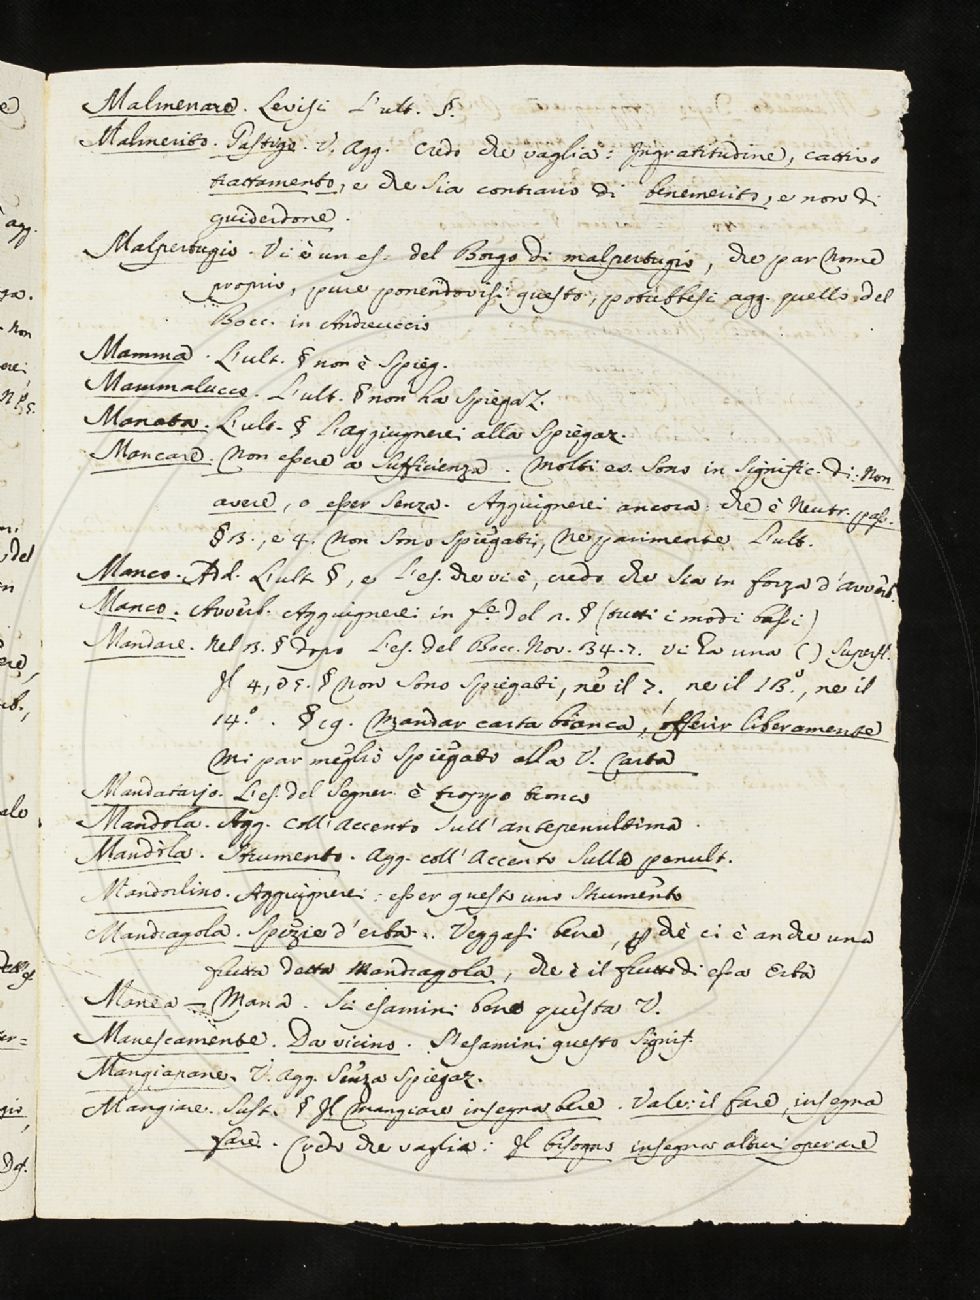 Malmenare. Levisi l'ult. §.
Malmerito. Gastigo. V. Agg. Credo che vaglia: Ingratitudine, cattivo
trattamento, e che sia contrario di benemerito, e non di
guiderdone.
Malpertugio. Vi è un es. del Borgo di malpertugio, che par nome
proprio, pure ponendovisi questo, potrebbesi agg. quello del
Bocc. in Andreuccio
Mamma. L'ult. § non è spieg.
Mammalucco. L'ult. § non ha spiegaz.
Manata. L'ult. § l'aggiugnerei alla spiegaz.
Mancare. Non essere a sufficienza. Molti es. sono in signific. di: Non
avere, o esser senza. Aggiugnerei ancora: che è Neutr. pass.
§ 3., e 4. non sono spiegati, nè parimente l'ult.
Manco. Ad. L'ult. §, e l'es. che vi è, credo che sia in forza d'avverb.
Manco. Avverb. Aggiugnerei in f.e del 2. § (tutti i modi bassi)
Mandare. Nel 3. § dopo l'es. del Bocc. Nov. 34. 7. vi ha una () superfl.
Il 4, o 5. § non sono spiegati, nè il 7., nè il 13.º, nè il
14.º. § 19. Mandar carta bianca, offerir liberamente
mi par meglio spiegato alla V. Carta
Mandatario. L'es. del Segner. è troppo tronco
Mandola. Agg. coll'accento sull'antepenultima.
Mandòla. Strumento. Agg. coll'accento sulla penult.
Mandorlino. Aggiugnerei: esser questo uno strumento
Mandragola. Spezie d'erba. Veggasi bene, pchè ci è anche una
frutta detta mandragola, che è il frutto di essa erba
Manea = Mana. Si esamini bene questa V.
Manescamente. Da vicino. S'esamini questo signif.
Mangiapane. V. agg. senza spiegaz.
Mangiare. Sust. § Il mangiare insegna bere. Vale: il fare, insegna
fare. Credo che vaglia: Il bisogno insegna altrui operare